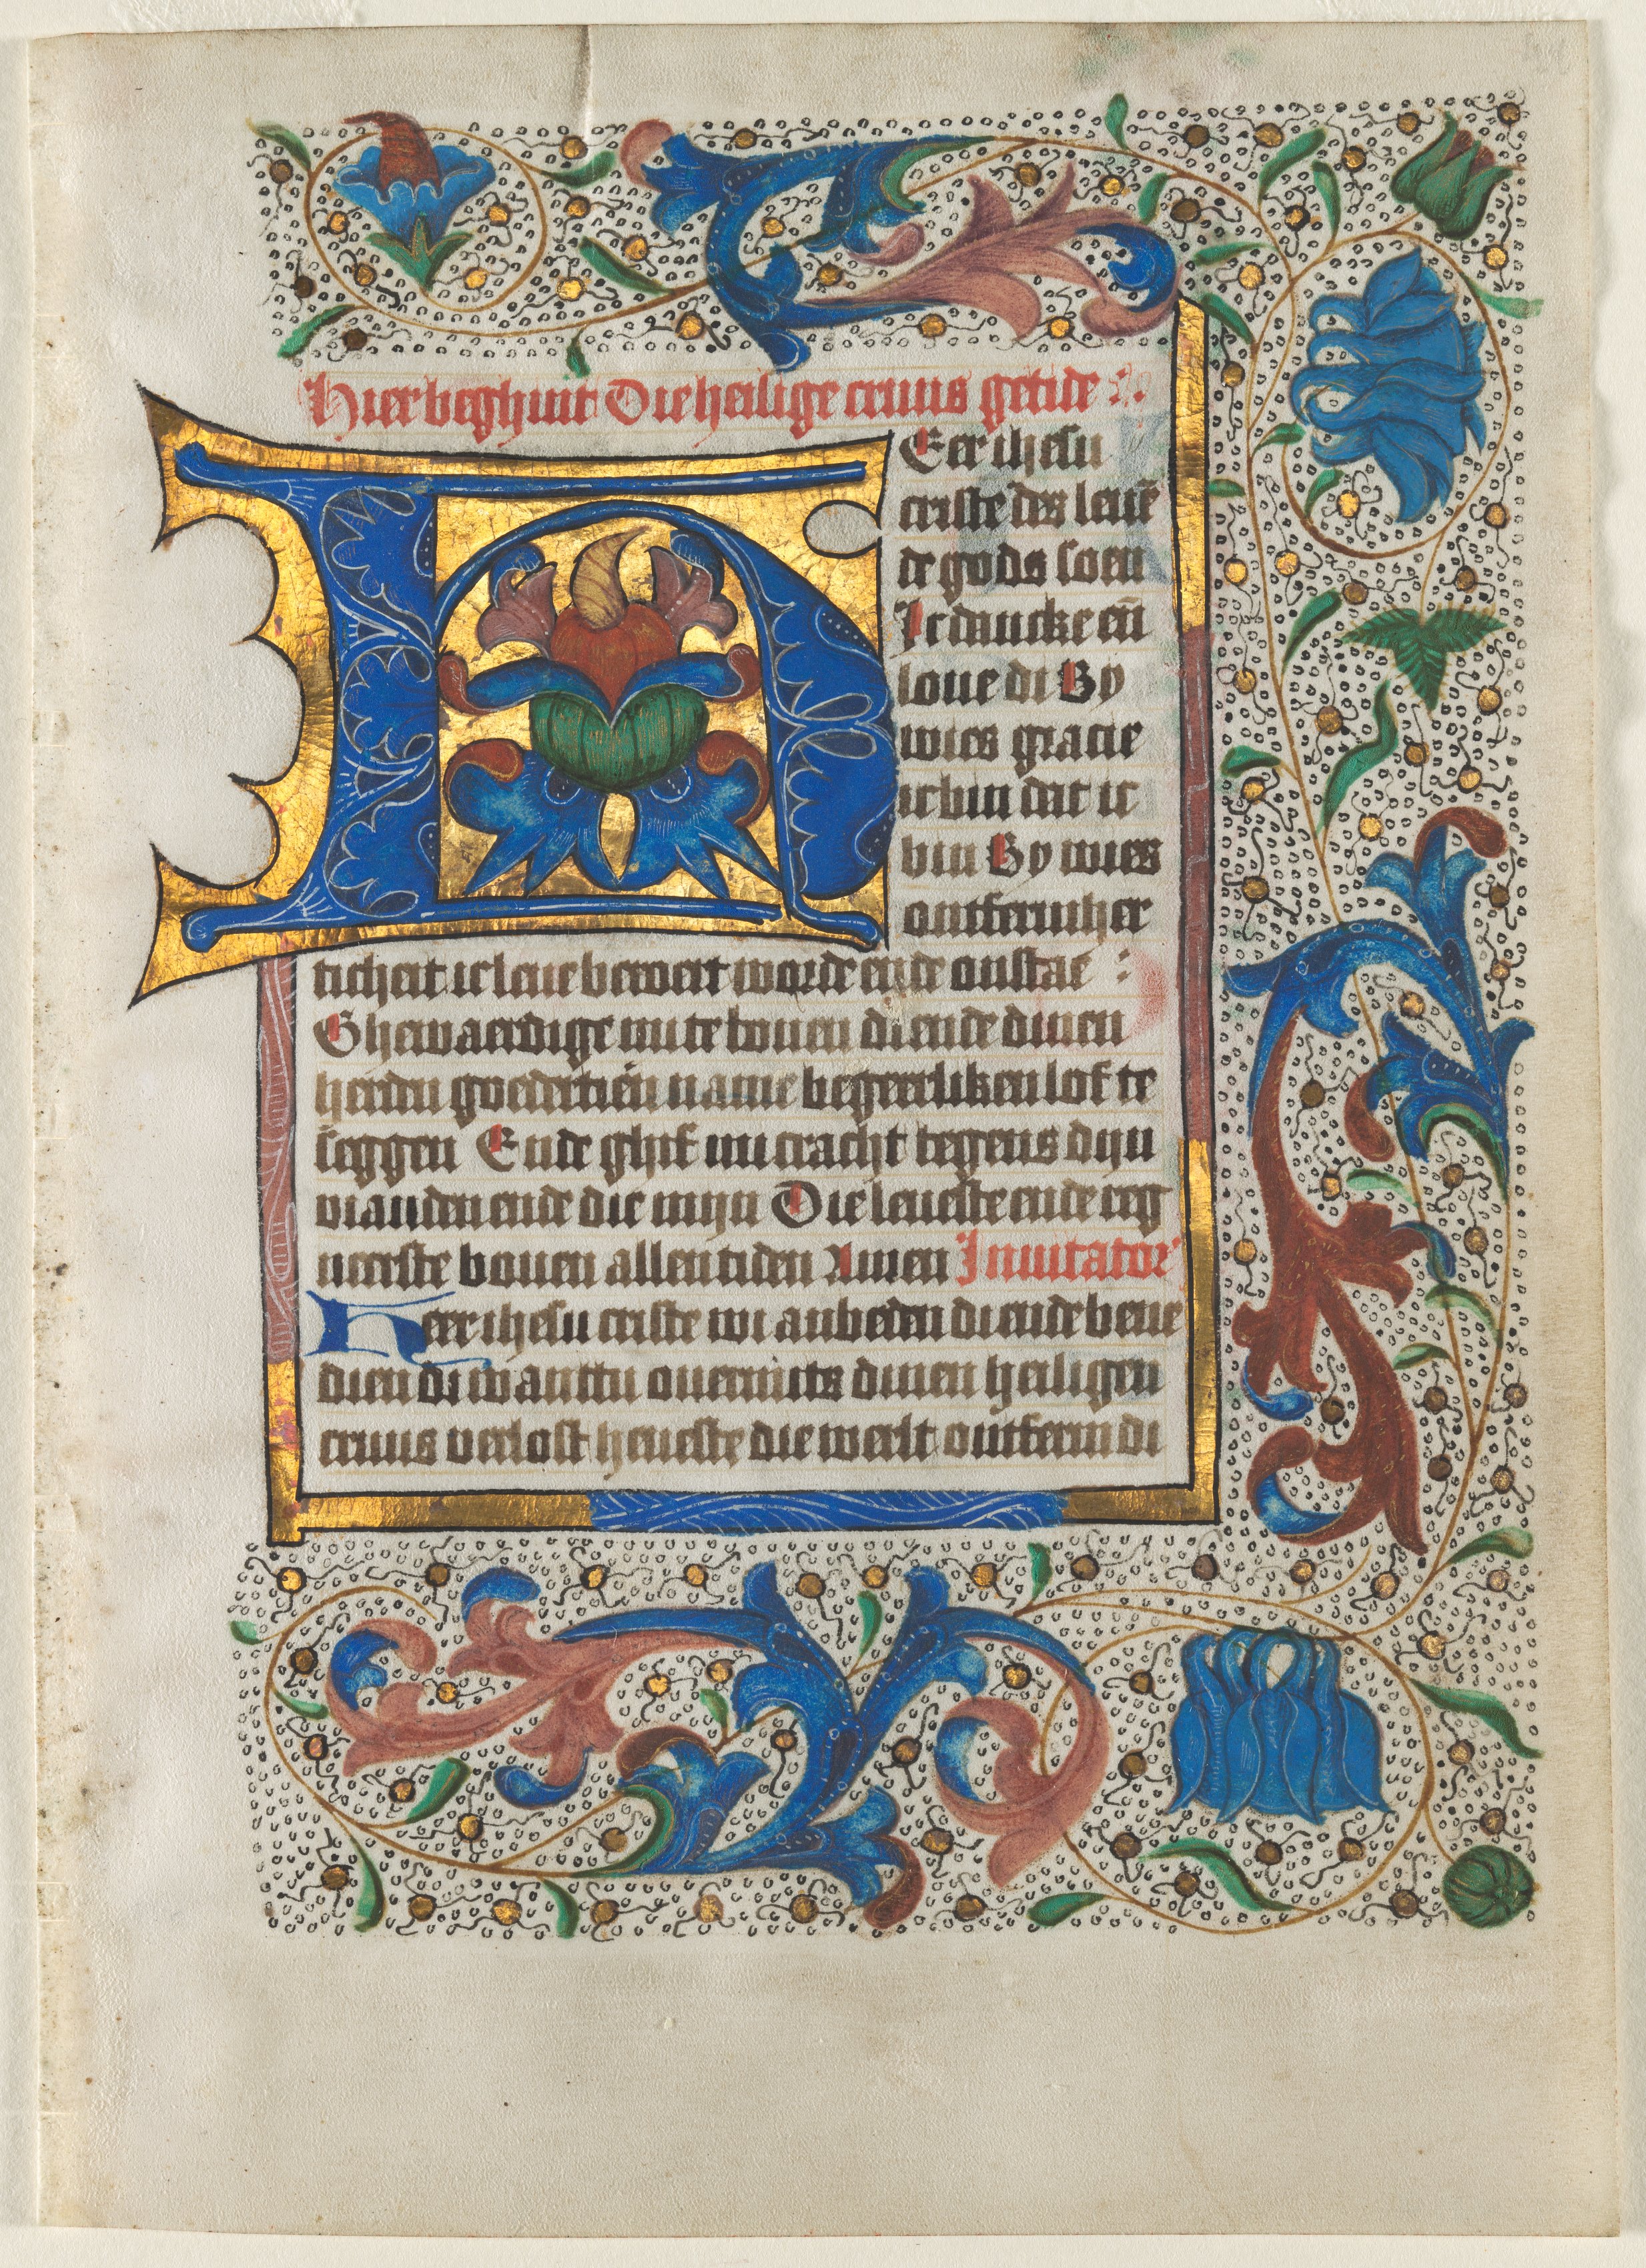 Hier beghint Die heilige cruus getide
HEer ihesu
criste des leuē
de gods soen
Ic dancke eñ
loue di By
wies gracie
ic bin dat ic
bin By wies
ontfermher
ticheit ic leue beroert worde ende onstae :
Ghewaerdige mi te louen di ende dinen
heiden goedertiēn name begeerliken lof te
seggen Ende ghif mi cracht tegens dijn
vianden ende die mijn Die leueste ende reg
neerste bouen allen tiden Amen Inuitator
Heer ihesu criste wi anbeden di ende bene
dien di want tu ouermits dinen heiligen
cruus verlost heueste die werlt ontferm di